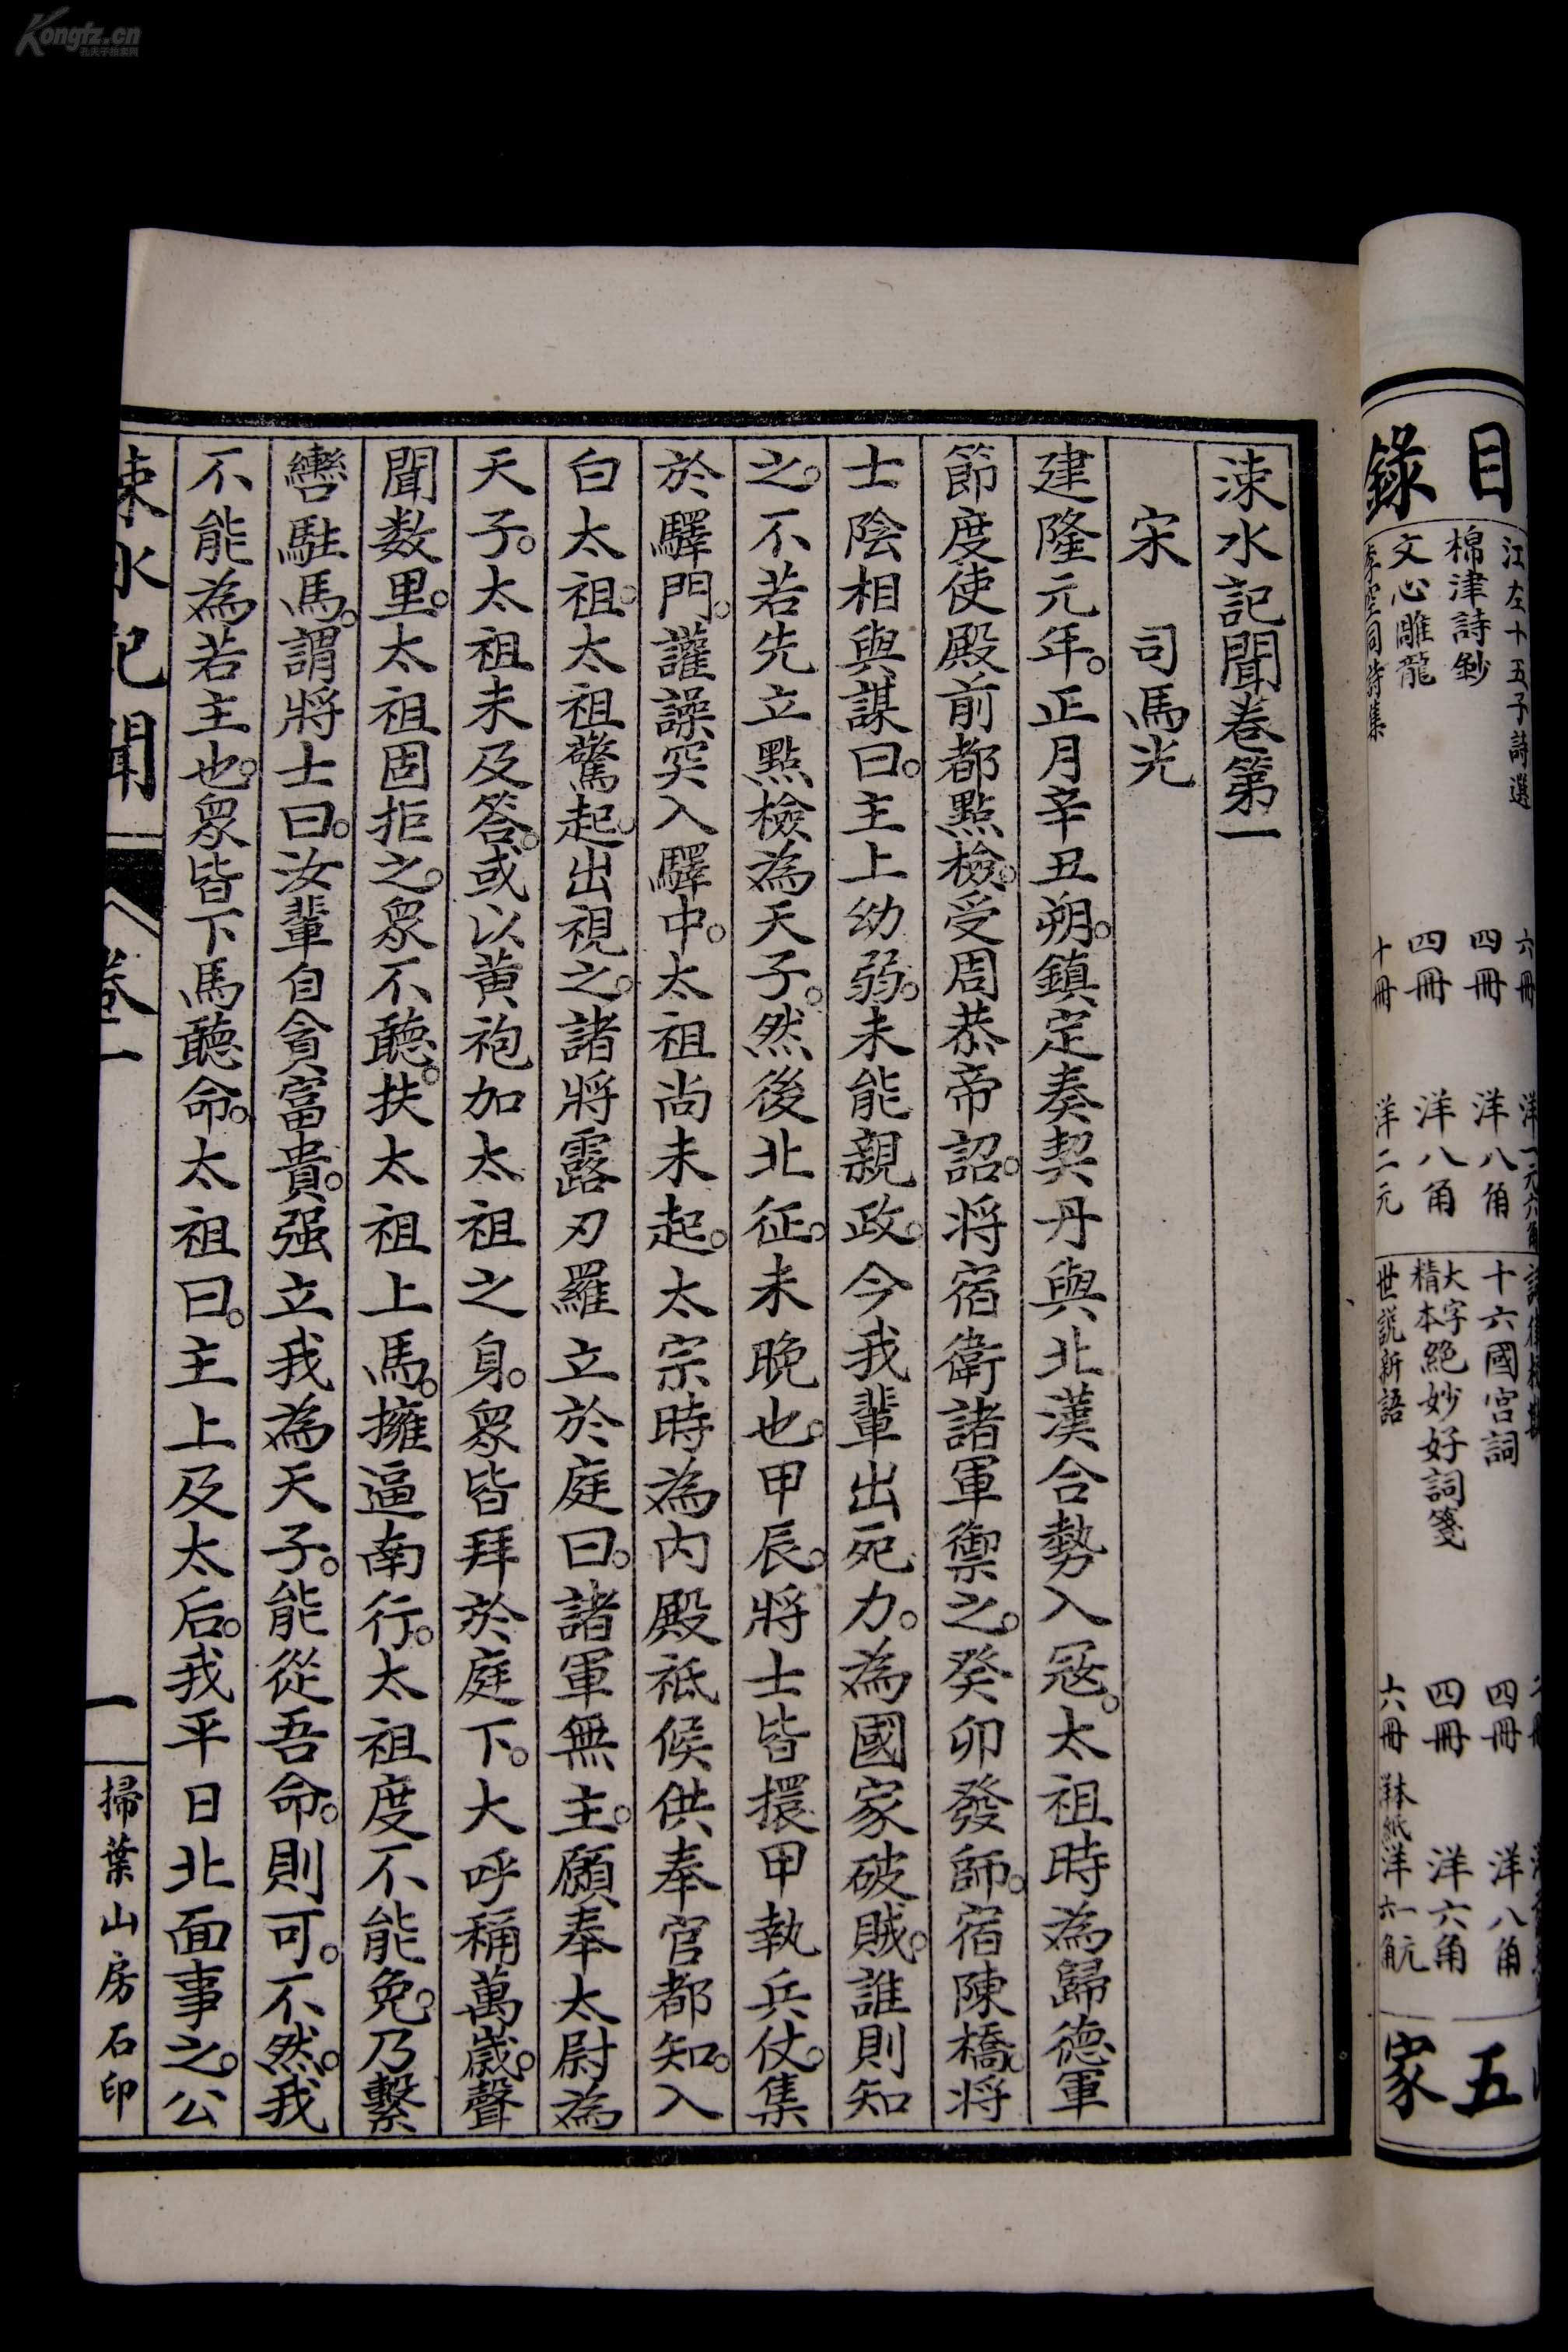 涑水記聞卷第一
宋 司馬光
建隆元年。正月辛丑朔。鎮定奏契丹與北漢合勢入寇。太祖時為歸德軍
節度使殿前都點檢。受周恭帝詔。將宿衛諸軍禦之。癸卯發師。宿陳橋。將
士陰相與謀曰。主上幼弱。未能親政。今我輩出死力。為國家破賊。誰則知
之。不若先立點檢為天子。然後北征。未晚也。甲辰。將士皆擐甲執兵仗。集
於驛門。讙譟突入驛中。太祖尚未起。太宗時為内殿祗候供奉官都知。入
白太祖。太祖驚起。出視之。諸將露刃羅立於庭曰。諸軍無主。願奉太尉為
天子。太祖未及答。或以黃袍加太祖之身。眾皆拜於庭下。大呼稱萬歲。聲
聞数里。太祖固拒之。眾不聽。扶太祖上馬。擁逼南行。太祖度不能免。乃繫
轡駐馬。謂將士曰。汝輩自貪富貴。强立我為天子。能從吾命。則可。不然。我
不能為若主也。眾皆下馬聽命。太祖曰。主上及太后。我平日北面事之。公
涑水記聞 卷一 一 掃葉山房石印
目錄
江左十五子詩選 六冊 洋一元六角
棉津詩鈔 四冊 洋八角
文心雕龍 四冊 洋八角
李空同詩集 十冊 洋二元
十六國宮詞 四冊 洋八角
大字精本絕妙好詞箋 四冊 洋六角
世說新語 六冊 洋一元六角
五家
Kongfz.cn
孔夫子旧书网